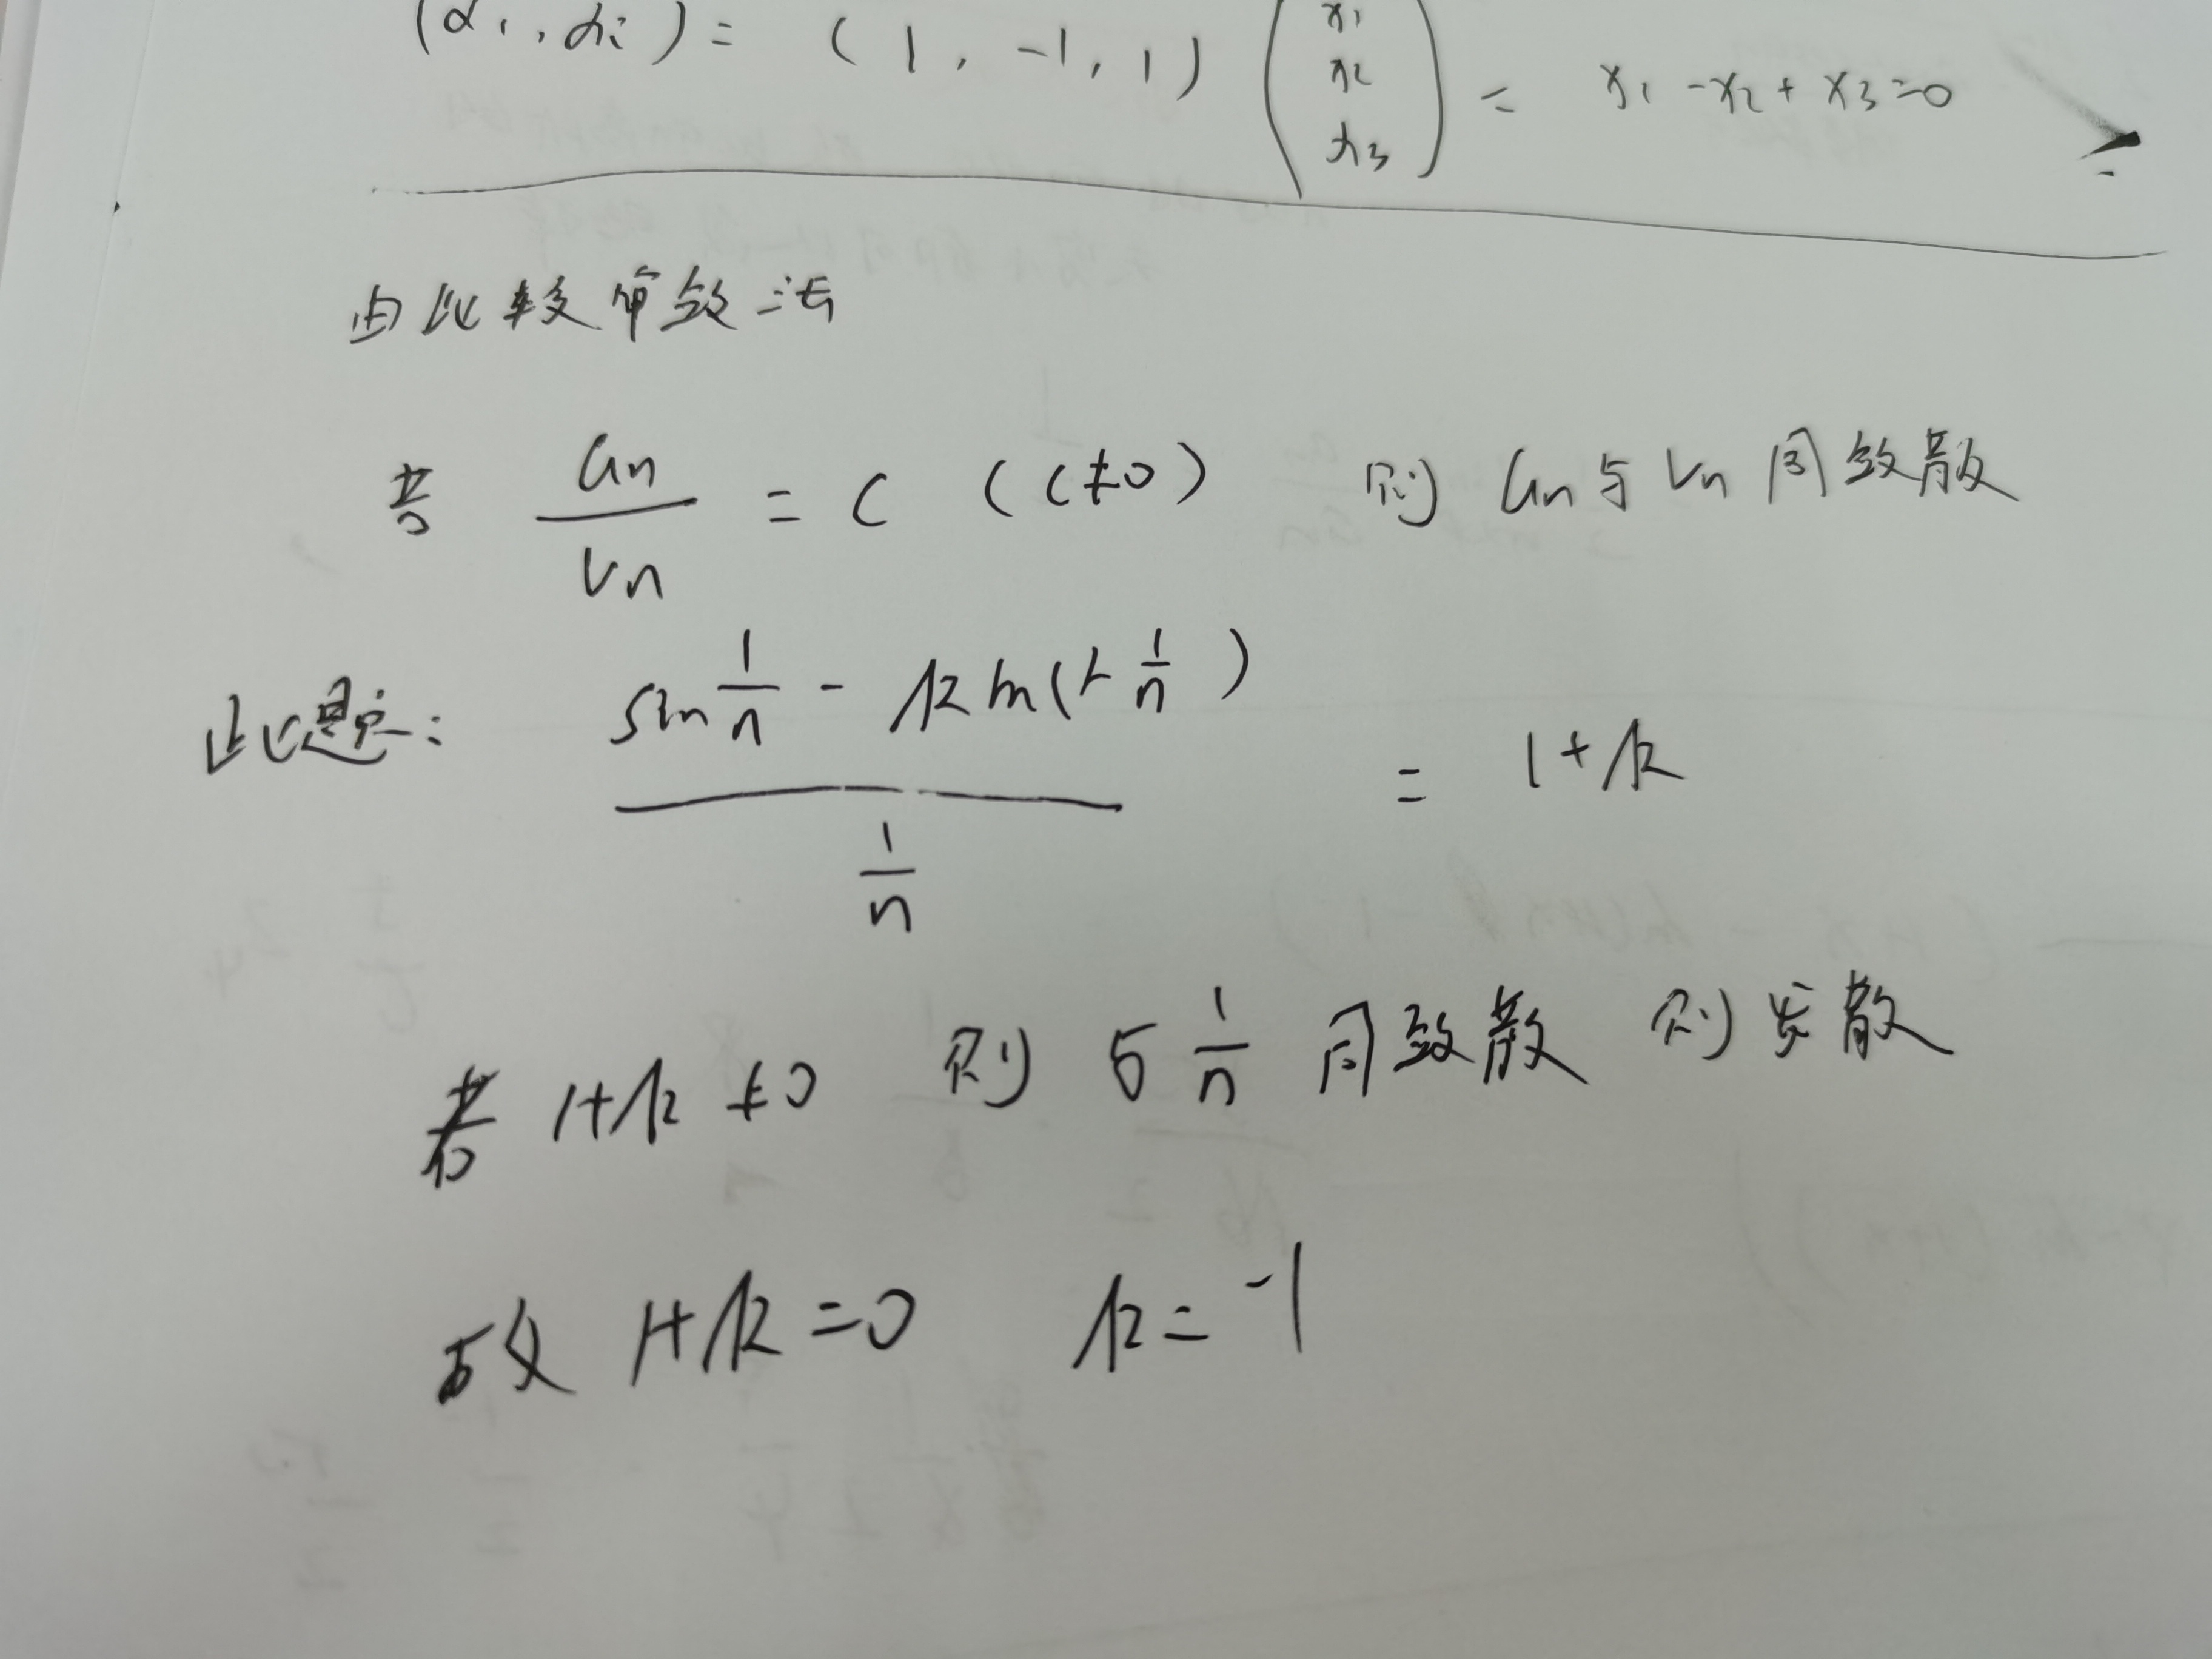 (α₁, α₂) = (1, -1, 1) (x₁ x₂ x₃) = x₁ - x₂ + x₃ = 0
由比较审敛法
若 Un/Vn = C (C≠0) 则 Un与Vn同敛散
此题: (sin 1/n - k ln(1- 1/n)) / (1/n) = 1+k
若 1+k ≠0 则 与 1/n 同敛散 则发散
故 1+k=0 k=-1